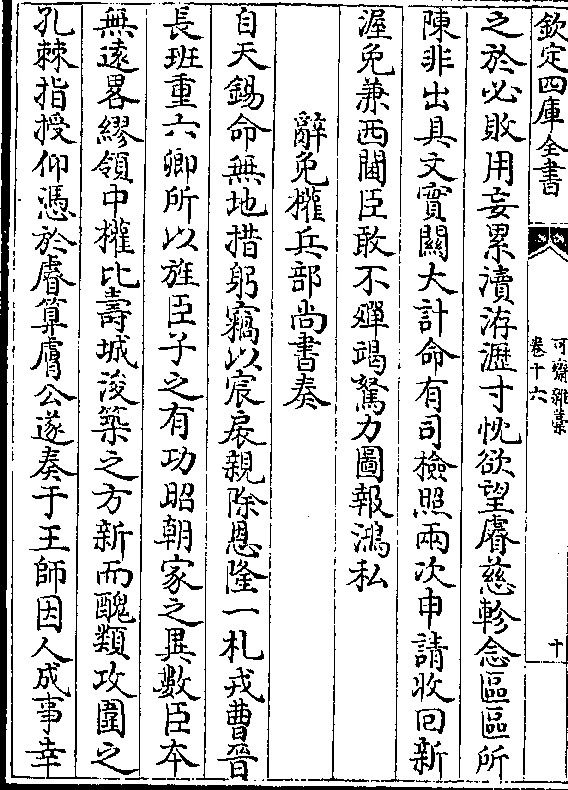 欽定四庫全書
可齋雜藁
卷十六
十
之於必敗用妄累瀆洊瀝寸忱欲望睿慈軫念區區所
陳非出具文實關大計命有司檢照兩次申請收回新
渥免兼西閫臣敢不殫竭駑力圖報鴻私
辭免權兵部尚書奏
自天錫命無地措躬竊以宸扆親除恩隆一札戎曹晉
長班重六卿所以旌臣子之有功昭朝家之異數臣本
無遠畧繆領中權比壽城浚築之方新而醜類攻圍之
孔棘指授仰憑於睿算膚公遂奏于王師因人成事幸